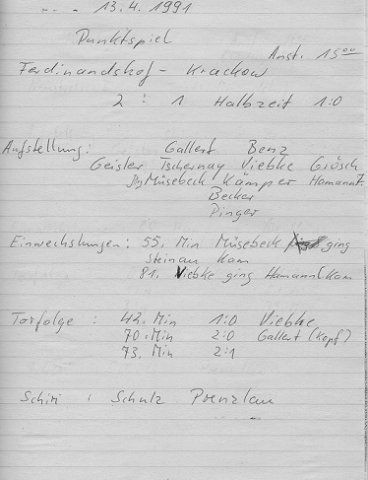 13.4.1991
Punktspiel
Anst. 15⁰⁰
Ferdinandshof - Krackow
2 : 1 Halbzeit 1:0
Aufstellung: Gallert Benz
Geisler Tschernay Viebke Grösch
Müsebeck Kämper Hamann T.
Becker
Pinger
Einwechslungen: 55. Min Müsebeck ging
steinau kam
81. Viebke ging Hamann kam
Torfolge : 42. Min 1:0 Viebke
70. Min 2:0 Gallert (Kopf)
73. Min 2:1
Schiri : Schulz Prenzlau